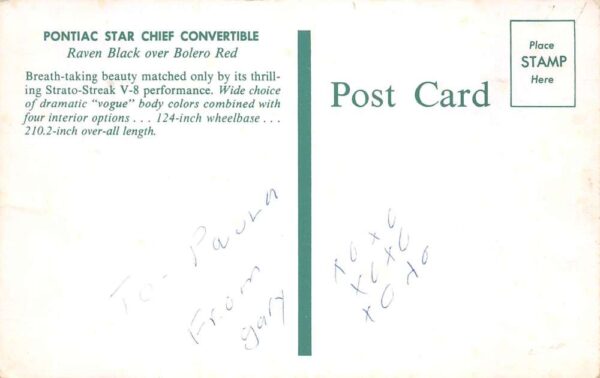 PONTIAC STAR CHIEF CONVERTIBLE
Raven Black over Bolero Red
Breath-taking beauty matched only by its thrill-
ing Strato-Streak V-8 performance. Wide choice
of dramatic "vogue" body colors combined with
four interior options . . . 124-inch wheelbase . . .
210.2-inch over-all length.
To - Paula
From
gary
Post Card
Place
STAMP
Here
xoxo
xoxo
xoxo